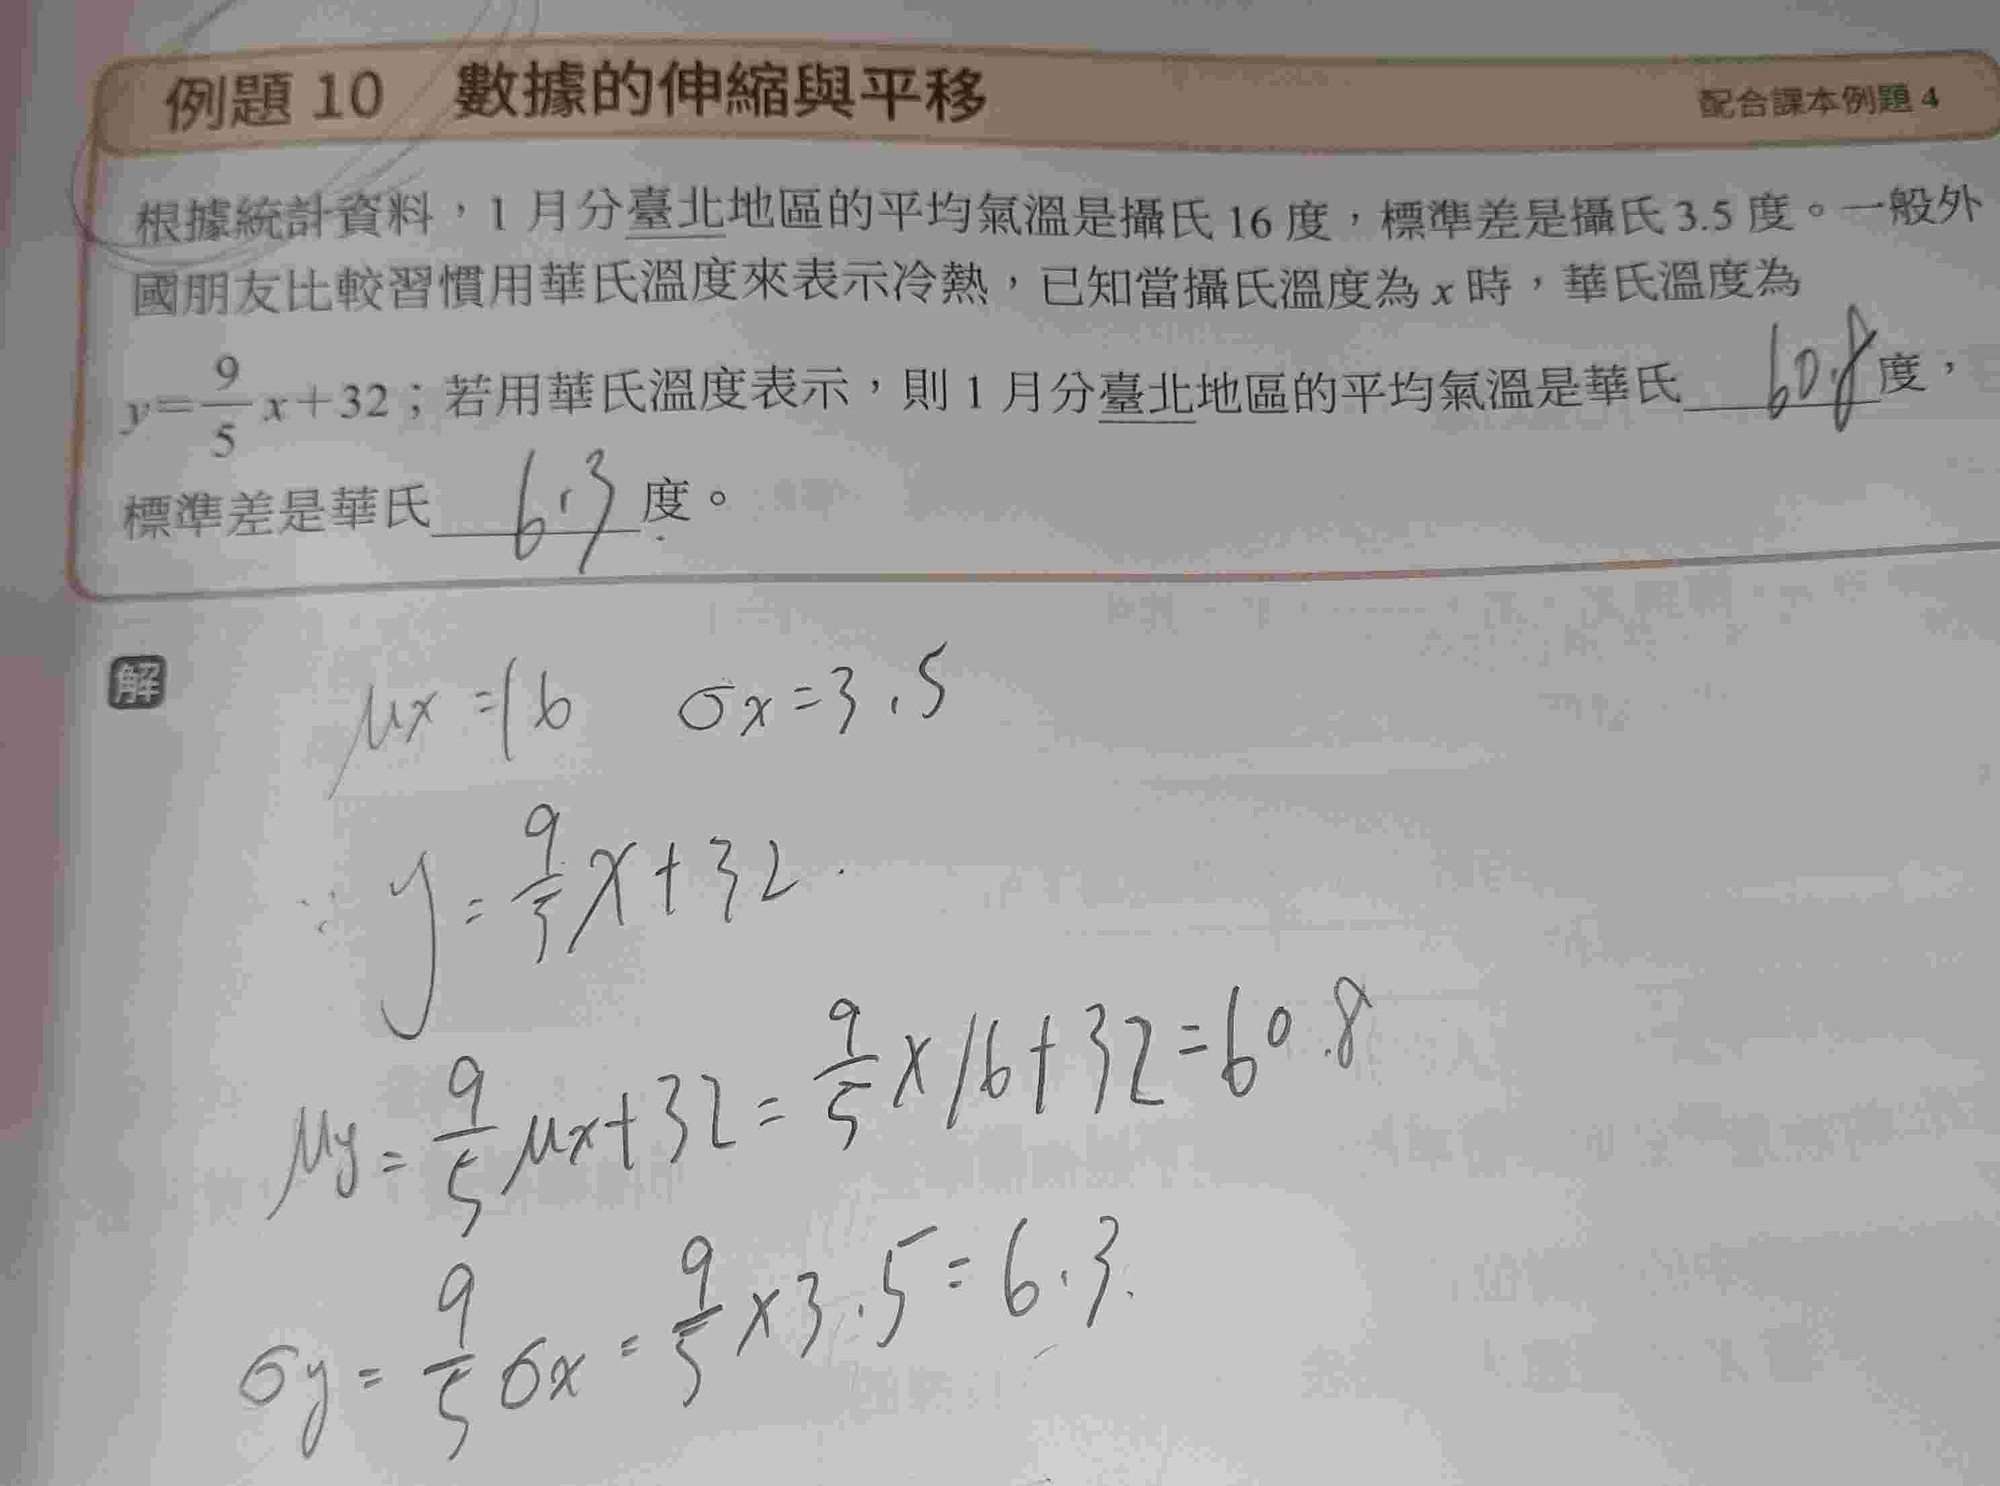 例題 10 數據的伸縮與平移 配合課本例題 4
根據統計資料，1 月分臺北地區的平均氣溫是攝氏 16 度，標準差是攝氏 3.5 度。一般外
國朋友比較習慣用華氏溫度來表示冷熱，已知當攝氏溫度為 x 時，華氏溫度為
y=9/5 x+32；若用華氏溫度表示，則 1 月分臺北地區的平均氣溫是華氏 60.8 度，
標準差是華氏 6.3 度。
解
μx=16 σx=3.5
∵ y=9/5 x+32
μy=9/5 μx+32=9/5×16+32=60.8
σy=9/5 σx=9/5×3.5=6.3